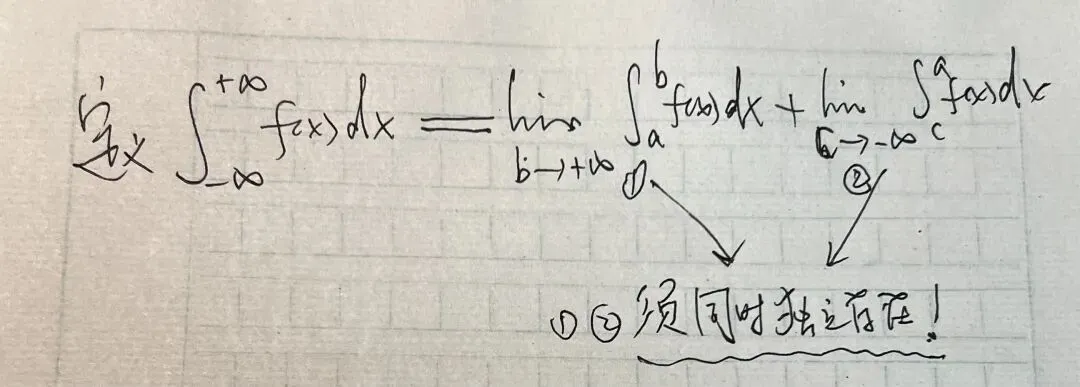 定义 ∫_{-∞}^{+∞} f(x)dx = lim_{b→+∞} ∫_a^b f(x)dx + lim_{c→-∞} ∫_c^a f(x)dx
① ②
①②须同时独立存在!